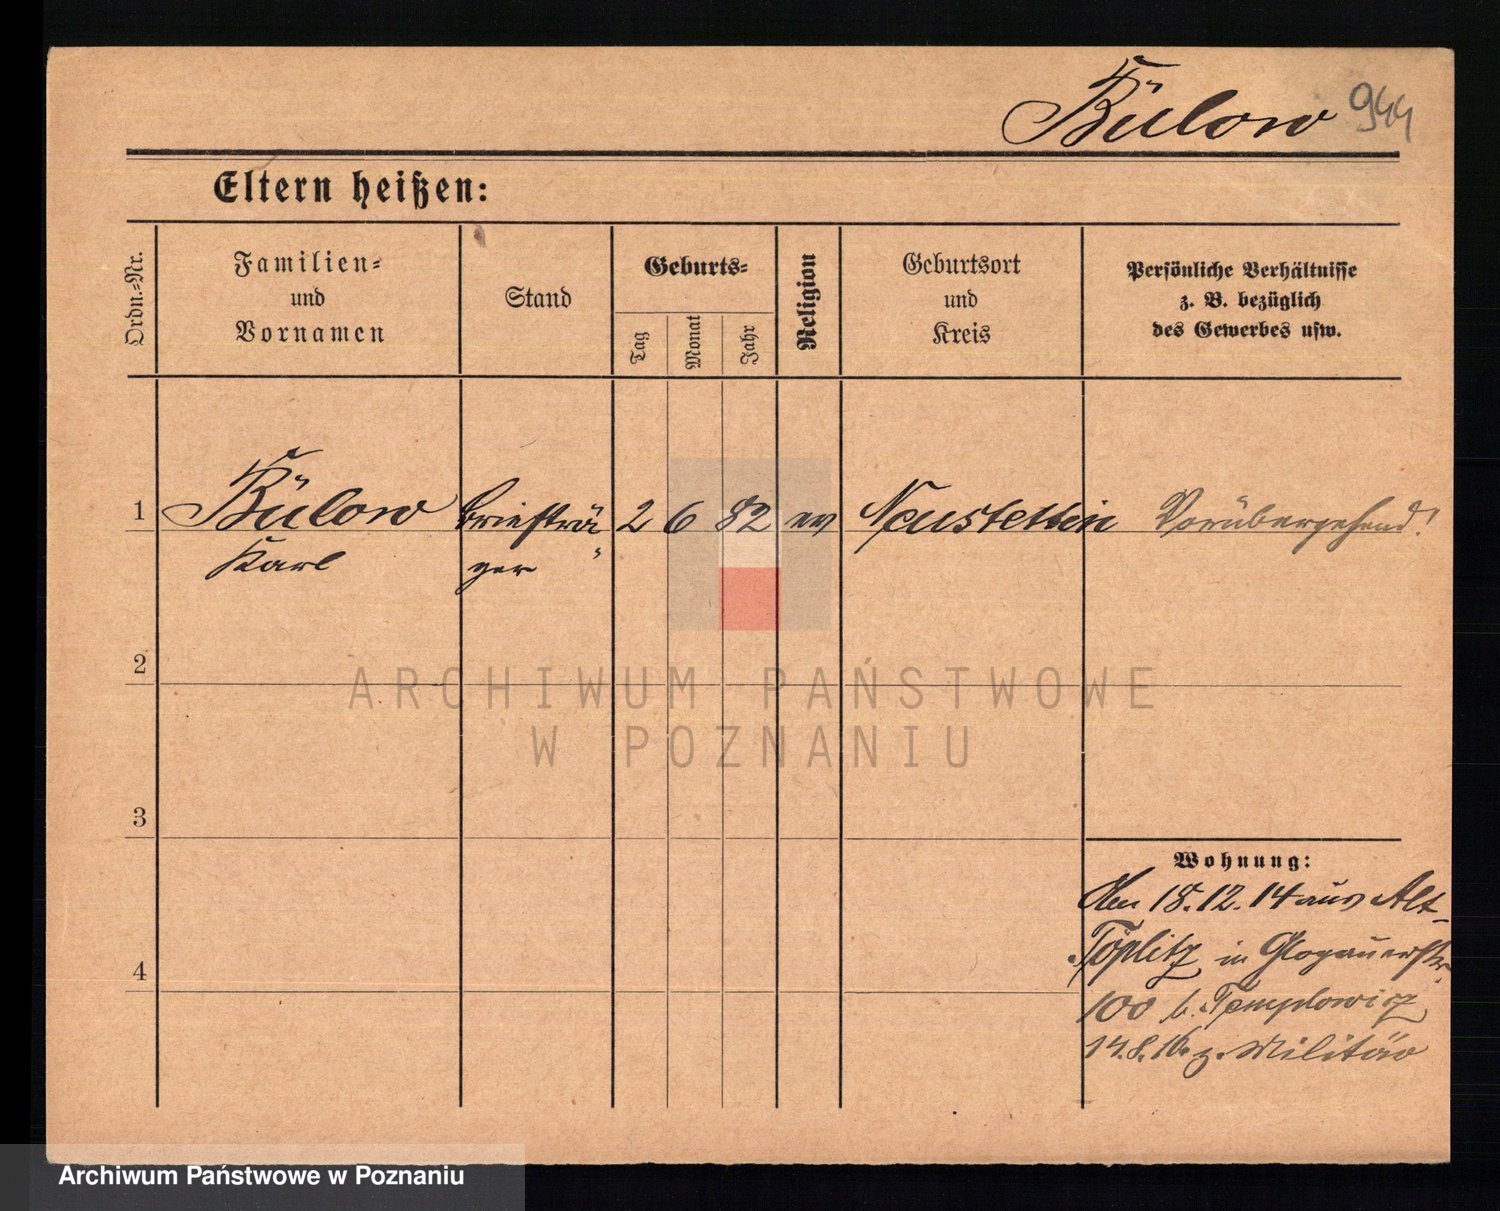 Bülow 944
Eltern heißen:
Ordn.-Nr.
Familien-
und
Vornamen
Stand
Geburts-
Tag
Monat
Jahr
Religion
Geburtsort
und
Kreis
Persönliche Verhältnisse
z. B. bezüglich
des Gewerbes usw.
1 Bülow Briefträ 2 6 82 ev Neustettin Vorübergehend!
Karl ger
2
ARCHIWUM PAŃSTWOWE
W POZNANIU
3
Wohnung:
Am 18.12.14 aus Alt-
Töplitz in Glogauerstr.
4
100 b. Templowicz
14.8.16 z. Militär
Archiwum Państwowe w Poznaniu